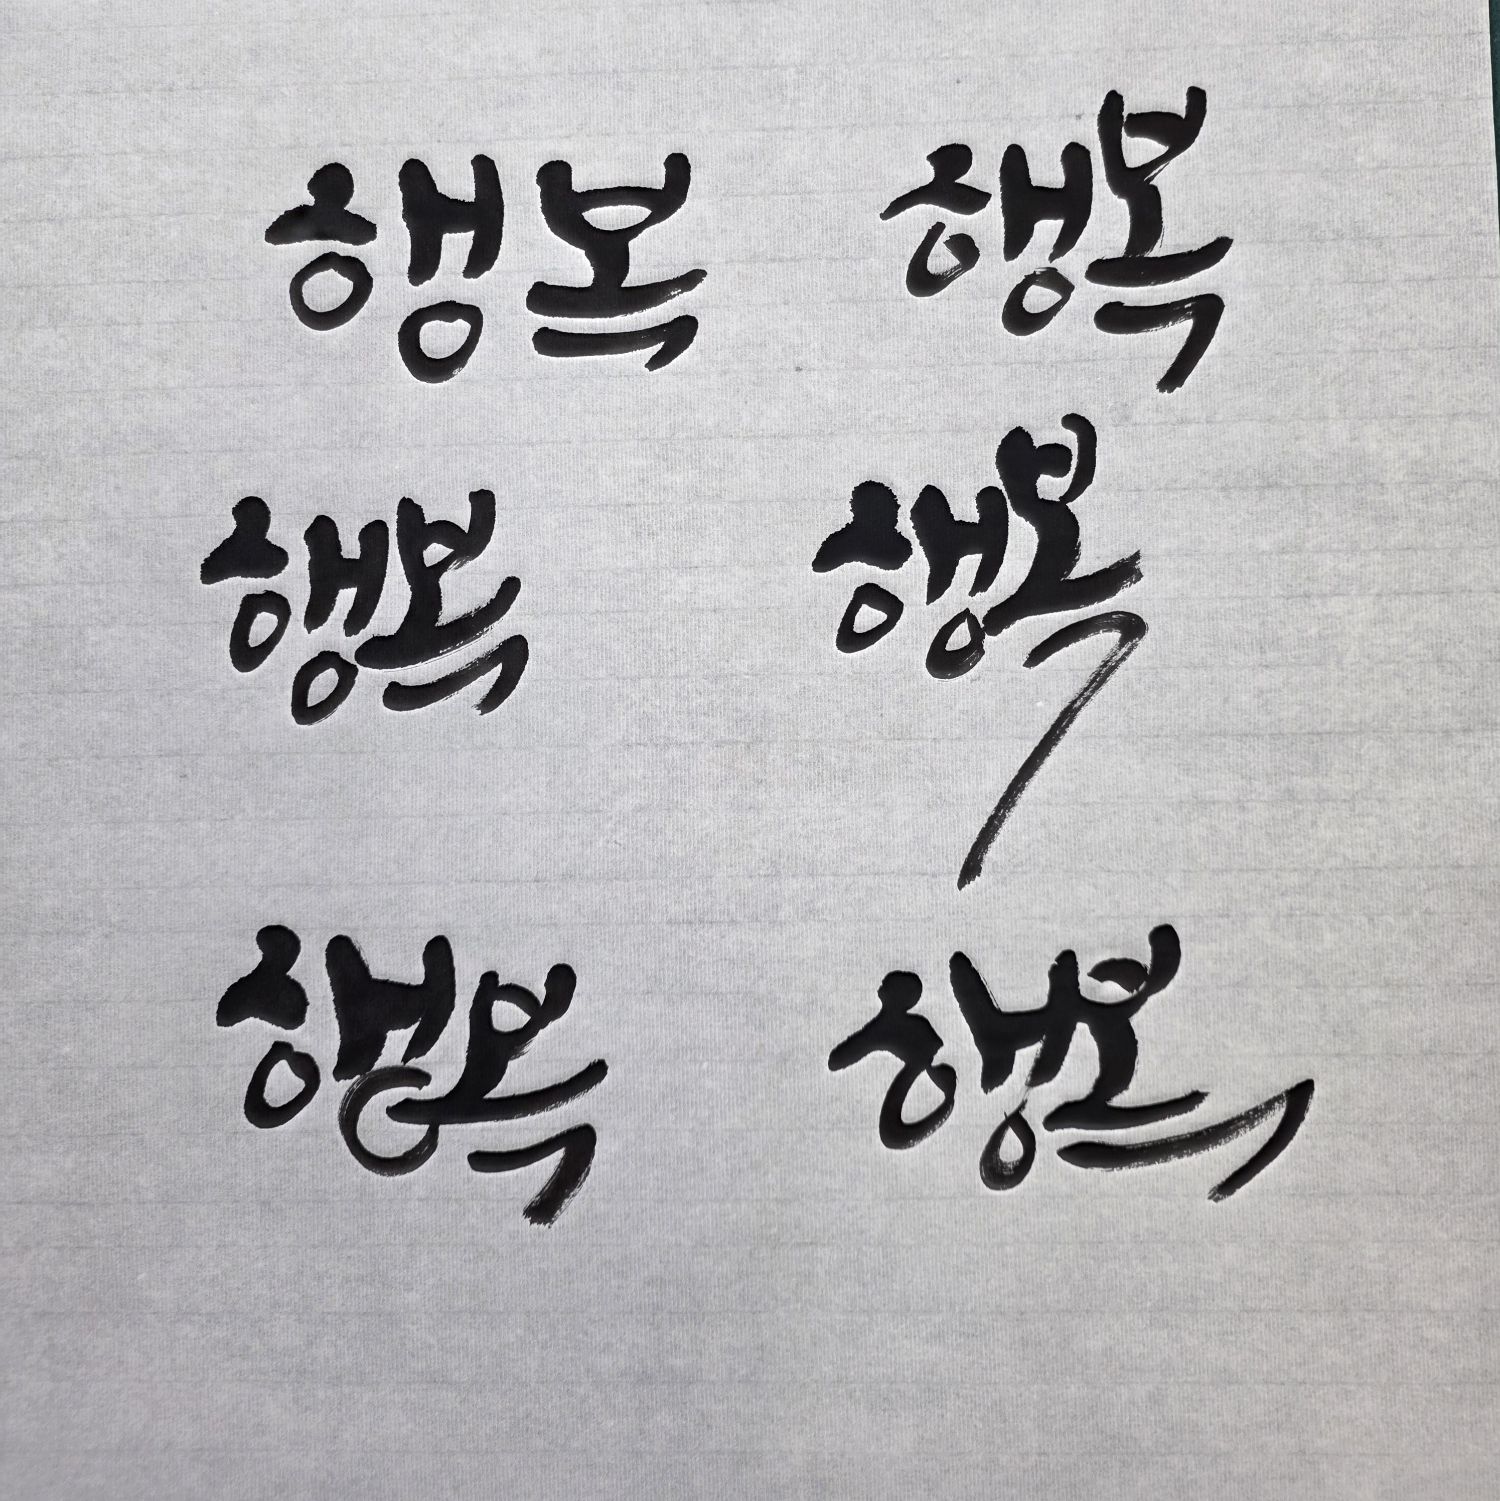 행복 행복
행복 행복
행복 행복